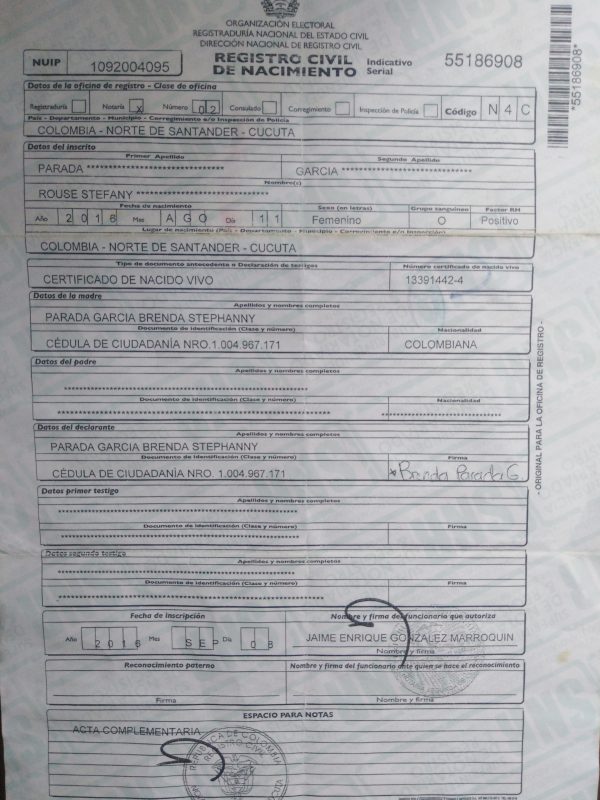 ORGANIZACIÓN ELECTORAL
REGISTRADURÍA NACIONAL DEL ESTADO CIVIL
DIRECCIÓN NACIONAL DE REGISTRO CIVIL
NUIP 1092004095
REGISTRO CIVIL DE NACIMIENTO
Indicativo Serial 55186908
*55186908*
Datos de la oficina de registro - Clase de oficina
Registraduría Notaría X Número 0 2 Consulado Corregimiento Inspección de Policía Código N 4 C
País - Departamento - Municipio - Corregimiento e/o Inspección de Policía
COLOMBIA - NORTE DE SANTANDER - CUCUTA
Datos del inscrito
Primer Apellido Segundo Apellido
PARADA ****************************** GARCIA ****************************
Nombre(s)
ROUSE STEFANY *****************************
Fecha de nacimiento Sexo (en letras) Grupo sanguíneo Factor RH
Año 2 0 1 6 Mes A G O Día 1 1 Femenino O Positivo
Lugar de nacimiento (País - Departamento - Municipio - Corregimiento e/o Inspección)
COLOMBIA - NORTE DE SANTANDER - CUCUTA
Tipo de documento antecedente o Declaración de testigos Número certificado de nacido vivo
CERTIFICADO DE NACIDO VIVO 13391442-4
Datos de la madre
Apellidos y nombres completos
PARADA GARCIA BRENDA STEPHANNY
Documento de identificación (Clase y número) Nacionalidad
CÉDULA DE CIUDADANÍA NRO.1.004.967.171 COLOMBIANA
Datos del padre
Apellidos y nombres completos
******************************************************
Documento de identificación (Clase y número) Nacionalidad
************************************************************ **************************
Datos del declarante
Apellidos y nombres completos
PARADA GARCIA BRENDA STEPHANNY
Documento de identificación (Clase y número) Firma
CÉDULA DE CIUDADANÍA NRO. 1.004.967.171 *Brenda Parada G.
Datos primer testigo
Apellidos y nombres completos
******************************************************
Documento de identificación (Clase y número) Firma
******************************************************
Datos segundo testigo
Apellidos y nombres completos
******************************************************
Documento de identificación (Clase y número) Firma
************************************************************
Fecha de inscripción Nombre y firma del funcionario que autoriza
Año 2 0 1 6 Mes S E P Día 0 8 JAIME ENRIQUE GONZALEZ MARROQUIN
Nombre y firma
Reconocimiento paterno Nombre y firma del funcionario ante quien se hace el reconocimiento
Firma Nombre y firma
ESPACIO PARA NOTAS
ACTA COMPLEMENTARIA
REPUBLICA DE COLOMBIA
REGISTRO CIVIL
- ORIGINAL PARA LA OFICINA DE REGISTRO -